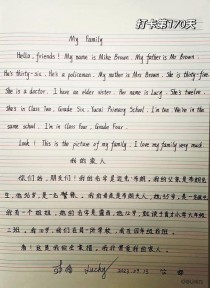 打卡第170天
My Family
Hello, friends! My name is Mike Brown. My father is Mr Brown.
He's thirty-six. He's a policeman. My mother is Mrs Brown. She is thirty-five.
She is a doctor. I have an elder sister. Her name is Lucy. She's twelve.
She's in Class Two, Grade Six, Yucai Primary School. I'm ten. We're in the
same school. I'm in Class Four, Grade Four.
Look! This is the picture of my family. I love my family very much.
我的家人
朋友们!我的名字是迈克·布朗。我的父亲是布朗先
生。他36岁,是一名警察。我的母亲是布朗夫人,35岁,是一名
我有一个姐姐,她的名字是露西,她12岁,就读于育才小学六年级
二班。我10岁,我们在同一所学校,我在四年级四班。
看!这是我的全家福。我非常爱我的家人。
Lucky 2023.09.15